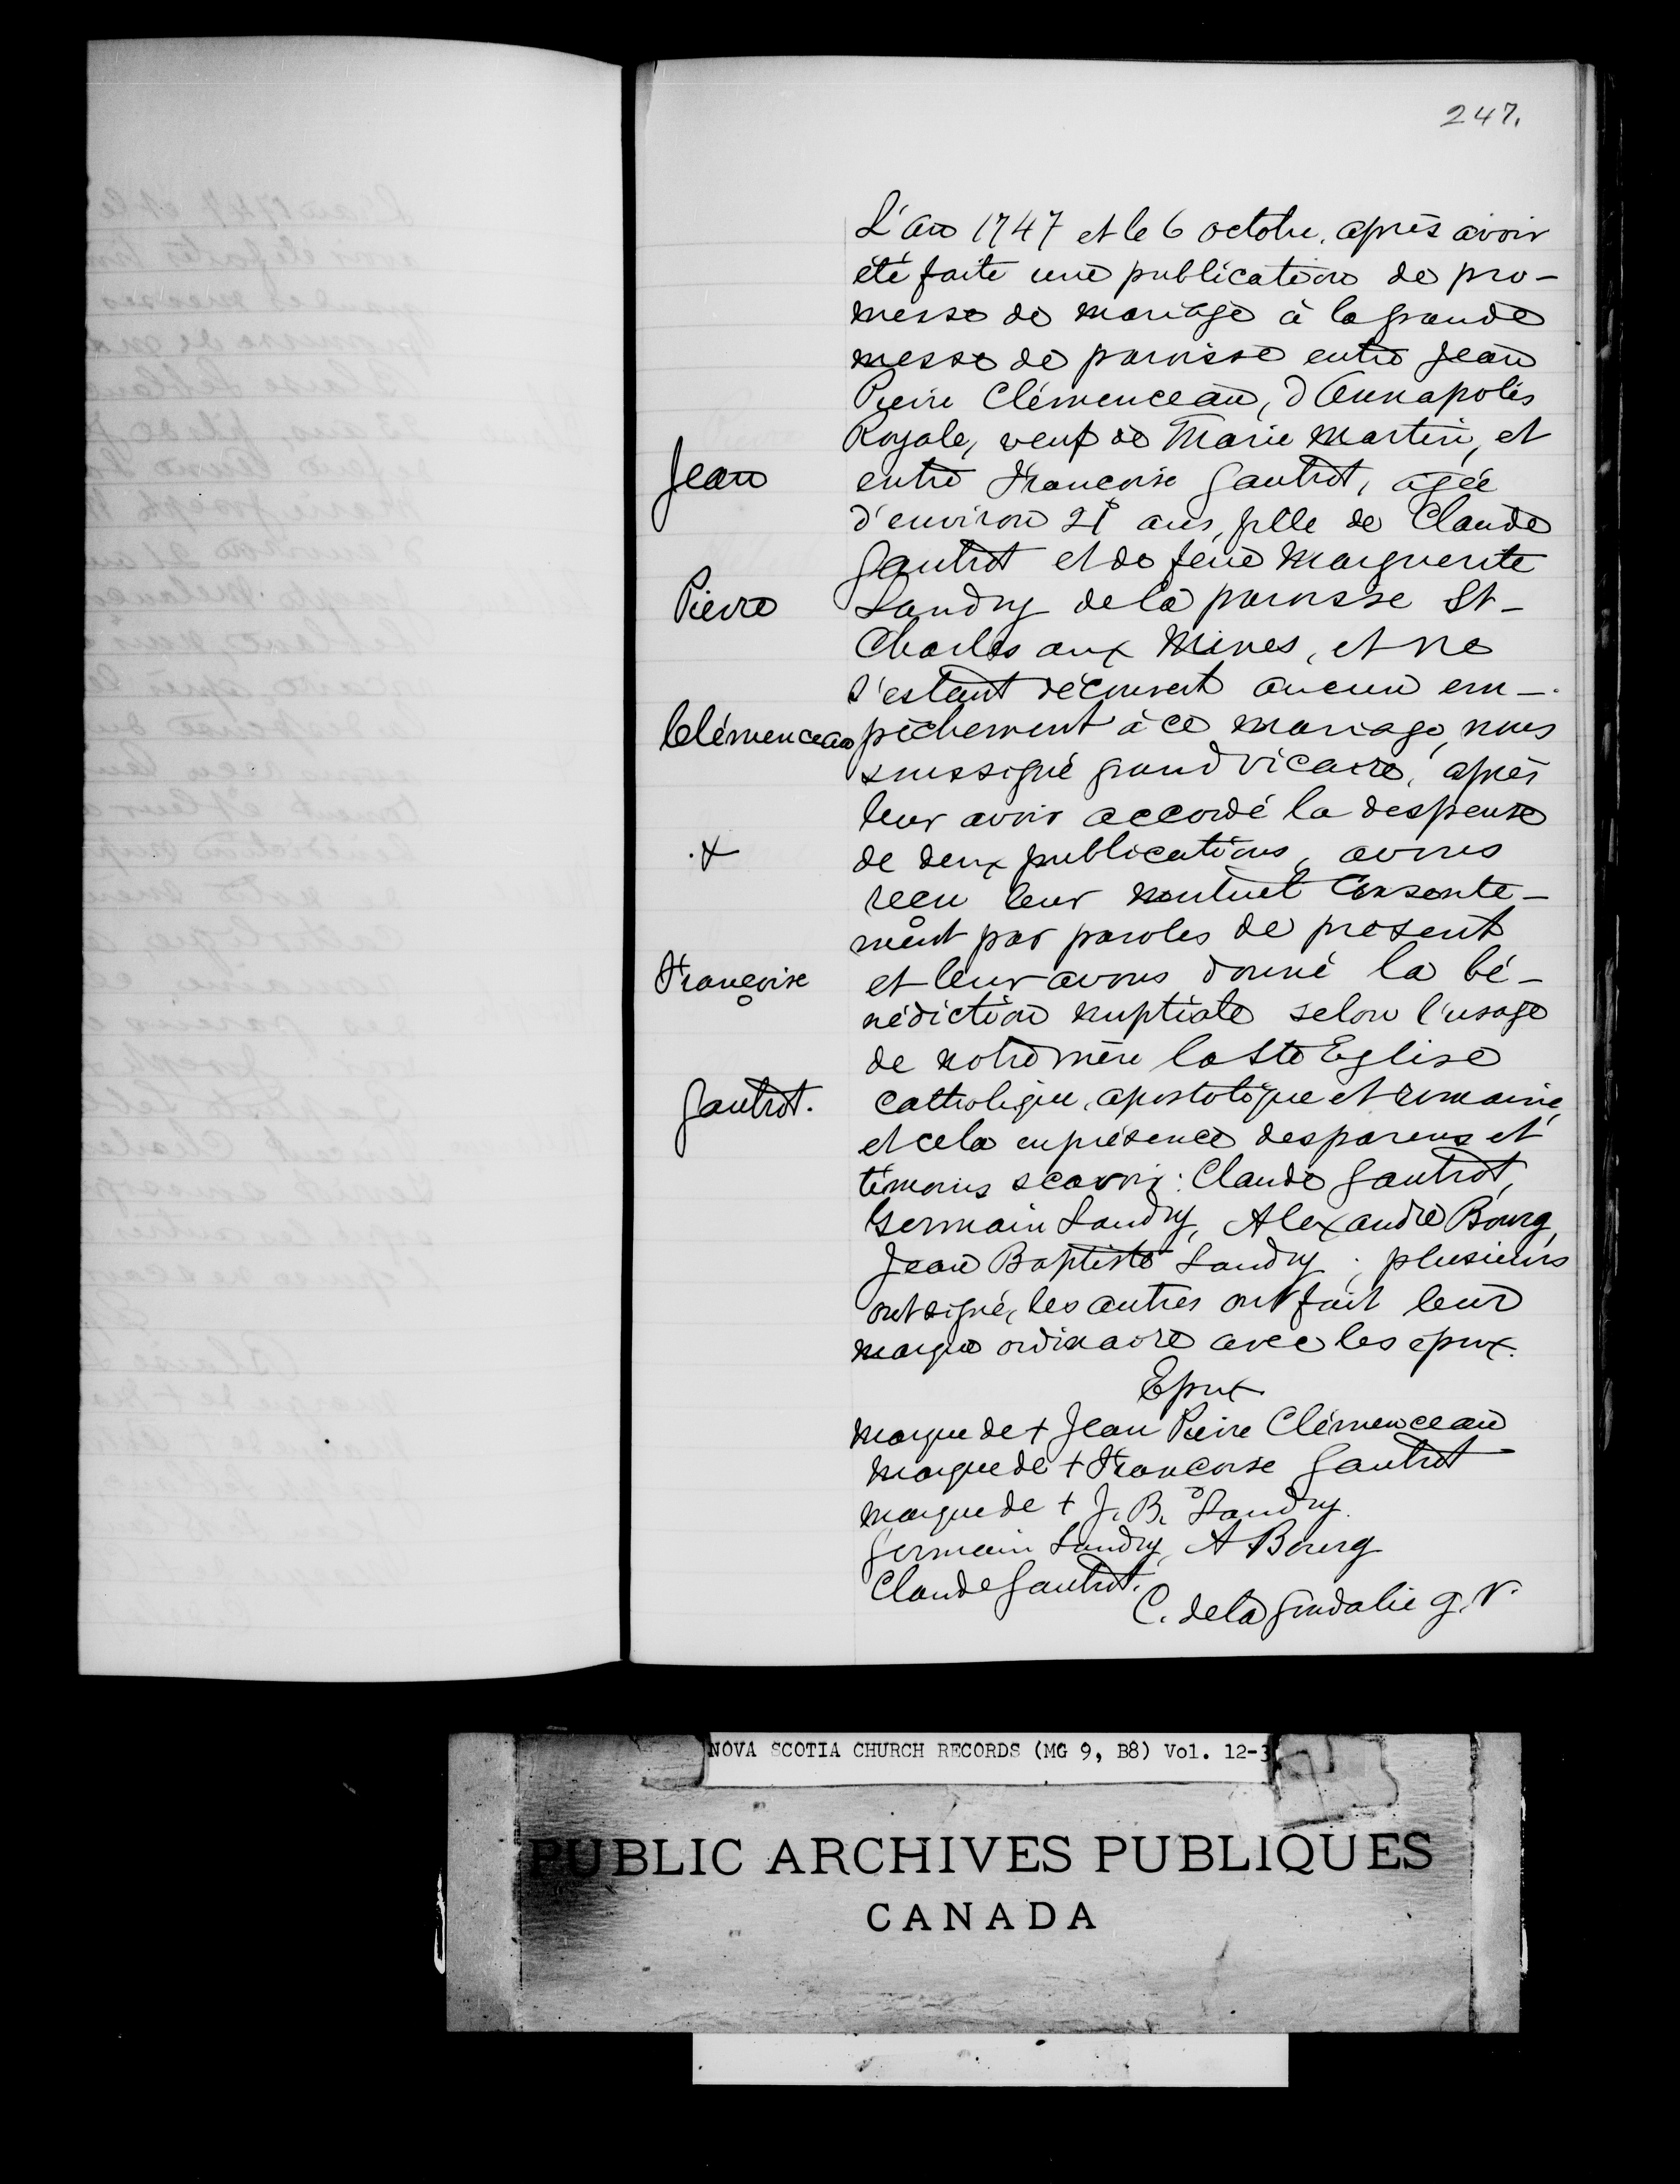 247.
L'an 1747 et le 6 octobre, après avoir
été faite une publication de pro-
messe de mariage à la grande
messe de paroisse entre Jean
Pierre Clémenceau, d'Annapolis
Royale, veuf de Marie Martin, et
Jean
entre Françoise Gautrot, agée
d'environ 21 ans, fille de Claude
Gautrot et de feue Marguerite
Pierre
Landry de la paroisse St-
Charles aux Mines, et ne
s'estant découvert aucun em-
Clémenceau
pêchement à ce mariage, nous
soussigné grand vicaire, après
leur avoir accordé la despense
&
de deux publications, avons
reçu leur mutuel consente-
ment par paroles de present
Françoise
et leur avons donné la bé-
nédiction nuptiale selon l'usage
de notre mère la Ste Eglise
Gautrot.
catholique, apostolique et romaine,
et cela en présence des parens et
témoins scavoir: Claude Gautrot,
Germain Landry, Alexandre Bourg,
Jean Baptiste Landry; plusieurs
ont signé, les autres ont fait leur
marque ordinaire avec les epoux.
Epoux
marque de + Jean Pierre Clémenceau
marque de + Françoise Gautrot
marque de + J. B. Landry.
Germain Landry, A Bourg
Claude Gautrot.
C. de la Goudalie g. v.
NOVA SCOTIA CHURCH RECORDS (MG 9, B8) Vol. 12-3
PUBLIC ARCHIVES PUBLIQUES
CANADA